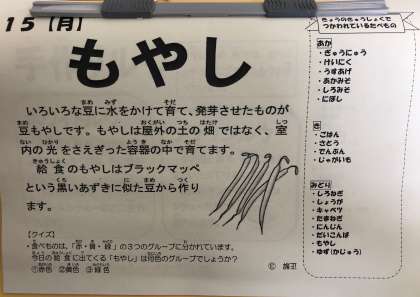 15【月】
もやし
いろいろな豆に水をかけて育て、発芽させたものが
豆もやしです。もやしは屋外の土の畑ではなく、室
内の光をさえぎった容器の中で育てます。
給食のもやしはブラックマッペ
という黒いあずきに似た豆から作り
ます。
【クイズ】
・食べものは、「赤・黄・緑」の3つのグループに分かれています。
今日の給食に出てくる「もやし」は何色のグループでしょうか?
①赤色 ②黄色 ③緑色
きょうのきゅうしょくで
つかわれているたべもの
あか
・ぎゅうにゅう
・けいにく
・うすあげ
・あかみそ
・しろみそ
・にぼし
き
・ごはん
・さとう
・でんぷん
・じゃがいも
みどり
・しろねぎ
・しょうが
・キャベツ
・たまねぎ
・にんじん
・だいこんば
・もやし
・ゆず(かじゅう)